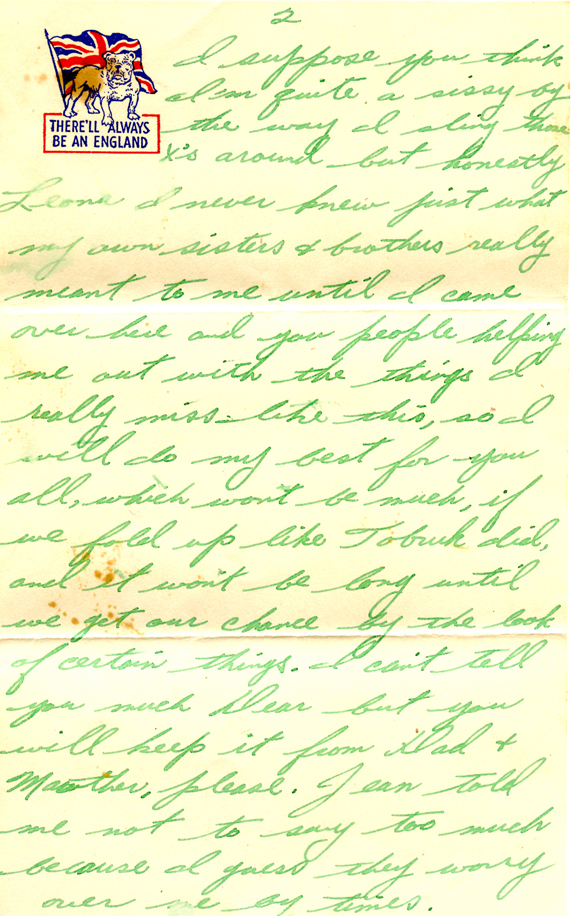 2
THERE'LL ALWAYS
BE AN ENGLAND
I suppose you think
I'm quite a sissy by
the way I sling those
X's around but honestly
Leona I never knew just what
my own sisters & brothers really
meant to me until I came
over here and you people helping
me out with the things I
really miss - like this, so I
will do my best for you
all, which won't be much, if
we fold up like Tobruk did,
and it won't be long until
we get our chance by the look
of certain things. I can't tell
you much Dear but you
will keep it from Dad &
Mawther, please. Jean told
me not to say too much
because I guess they worry
over me by times.